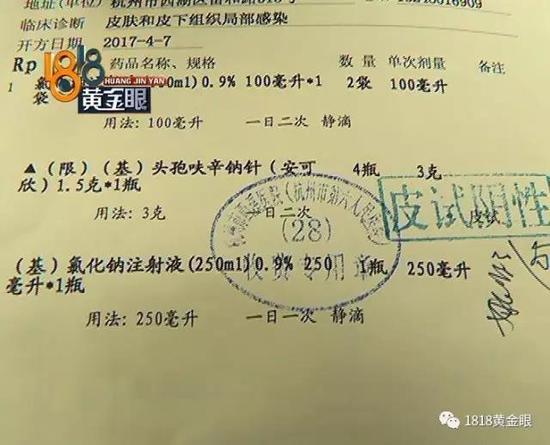 临床诊断 皮肤和皮下组织局部感染
开方日期 2017-4-7
Rp 药品名称、规格 数量 单次剂量 备注
1 氯 ml) 0.9% 100毫升*1 2袋 100毫升
袋
用法: 100毫升 一日二次 静滴
▲(限)(基)头孢呋辛钠针(安可 4瓶 3克
欣)1.5克*1瓶
用法: 3克 一日二次
(基)氯化钠注射液(250ml)0.9% 250 1瓶 250毫升
毫升*1瓶
用法: 250毫升 一日一次 静滴
皮试阴性
(杭州市第六人民医院)
(28)
收费专用章
1818
HUANG JIN YAN
黄金眼
1818黄金眼